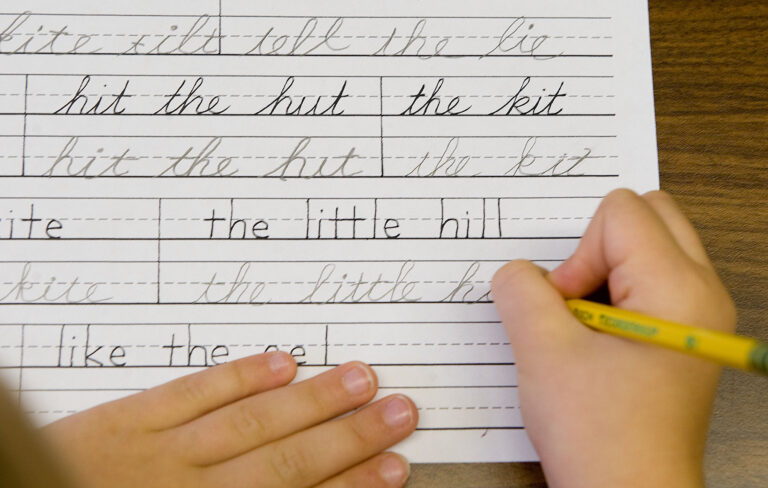 kite tilt tell the lie
hit the hut the kit
hit the hut the kit
the little hill
kite the little
like the eel